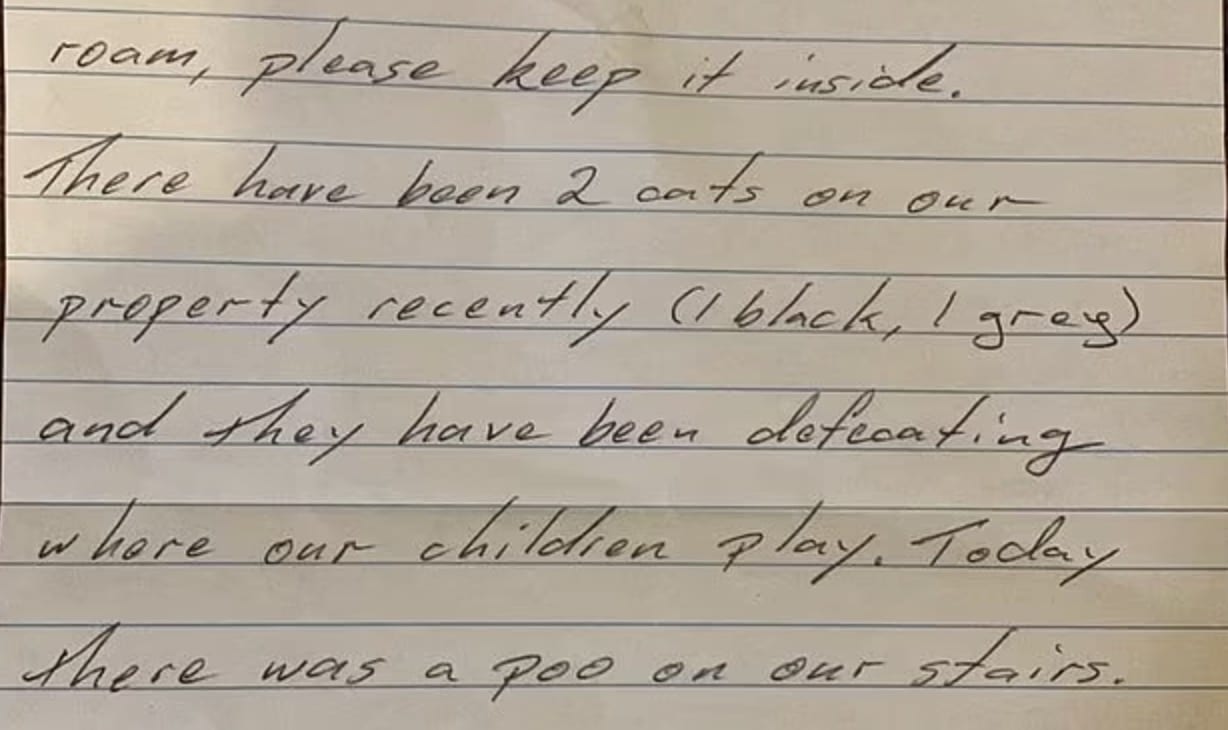 roam, please keep it inside.
There have been 2 cats on our
property recently (1 black, 1 grey)
and they have been defecating
where our children play. Today
there was a poo on our stairs.